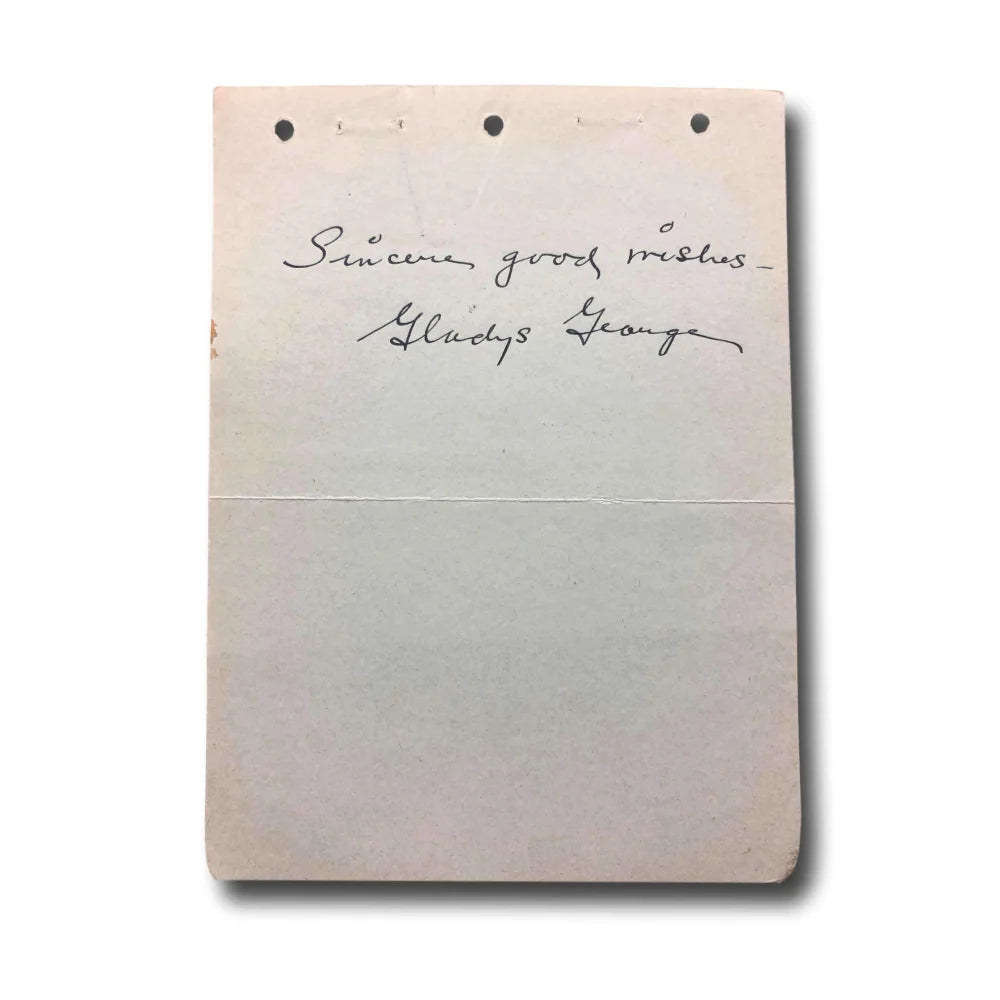 Sincere good wishes-
Gladys George